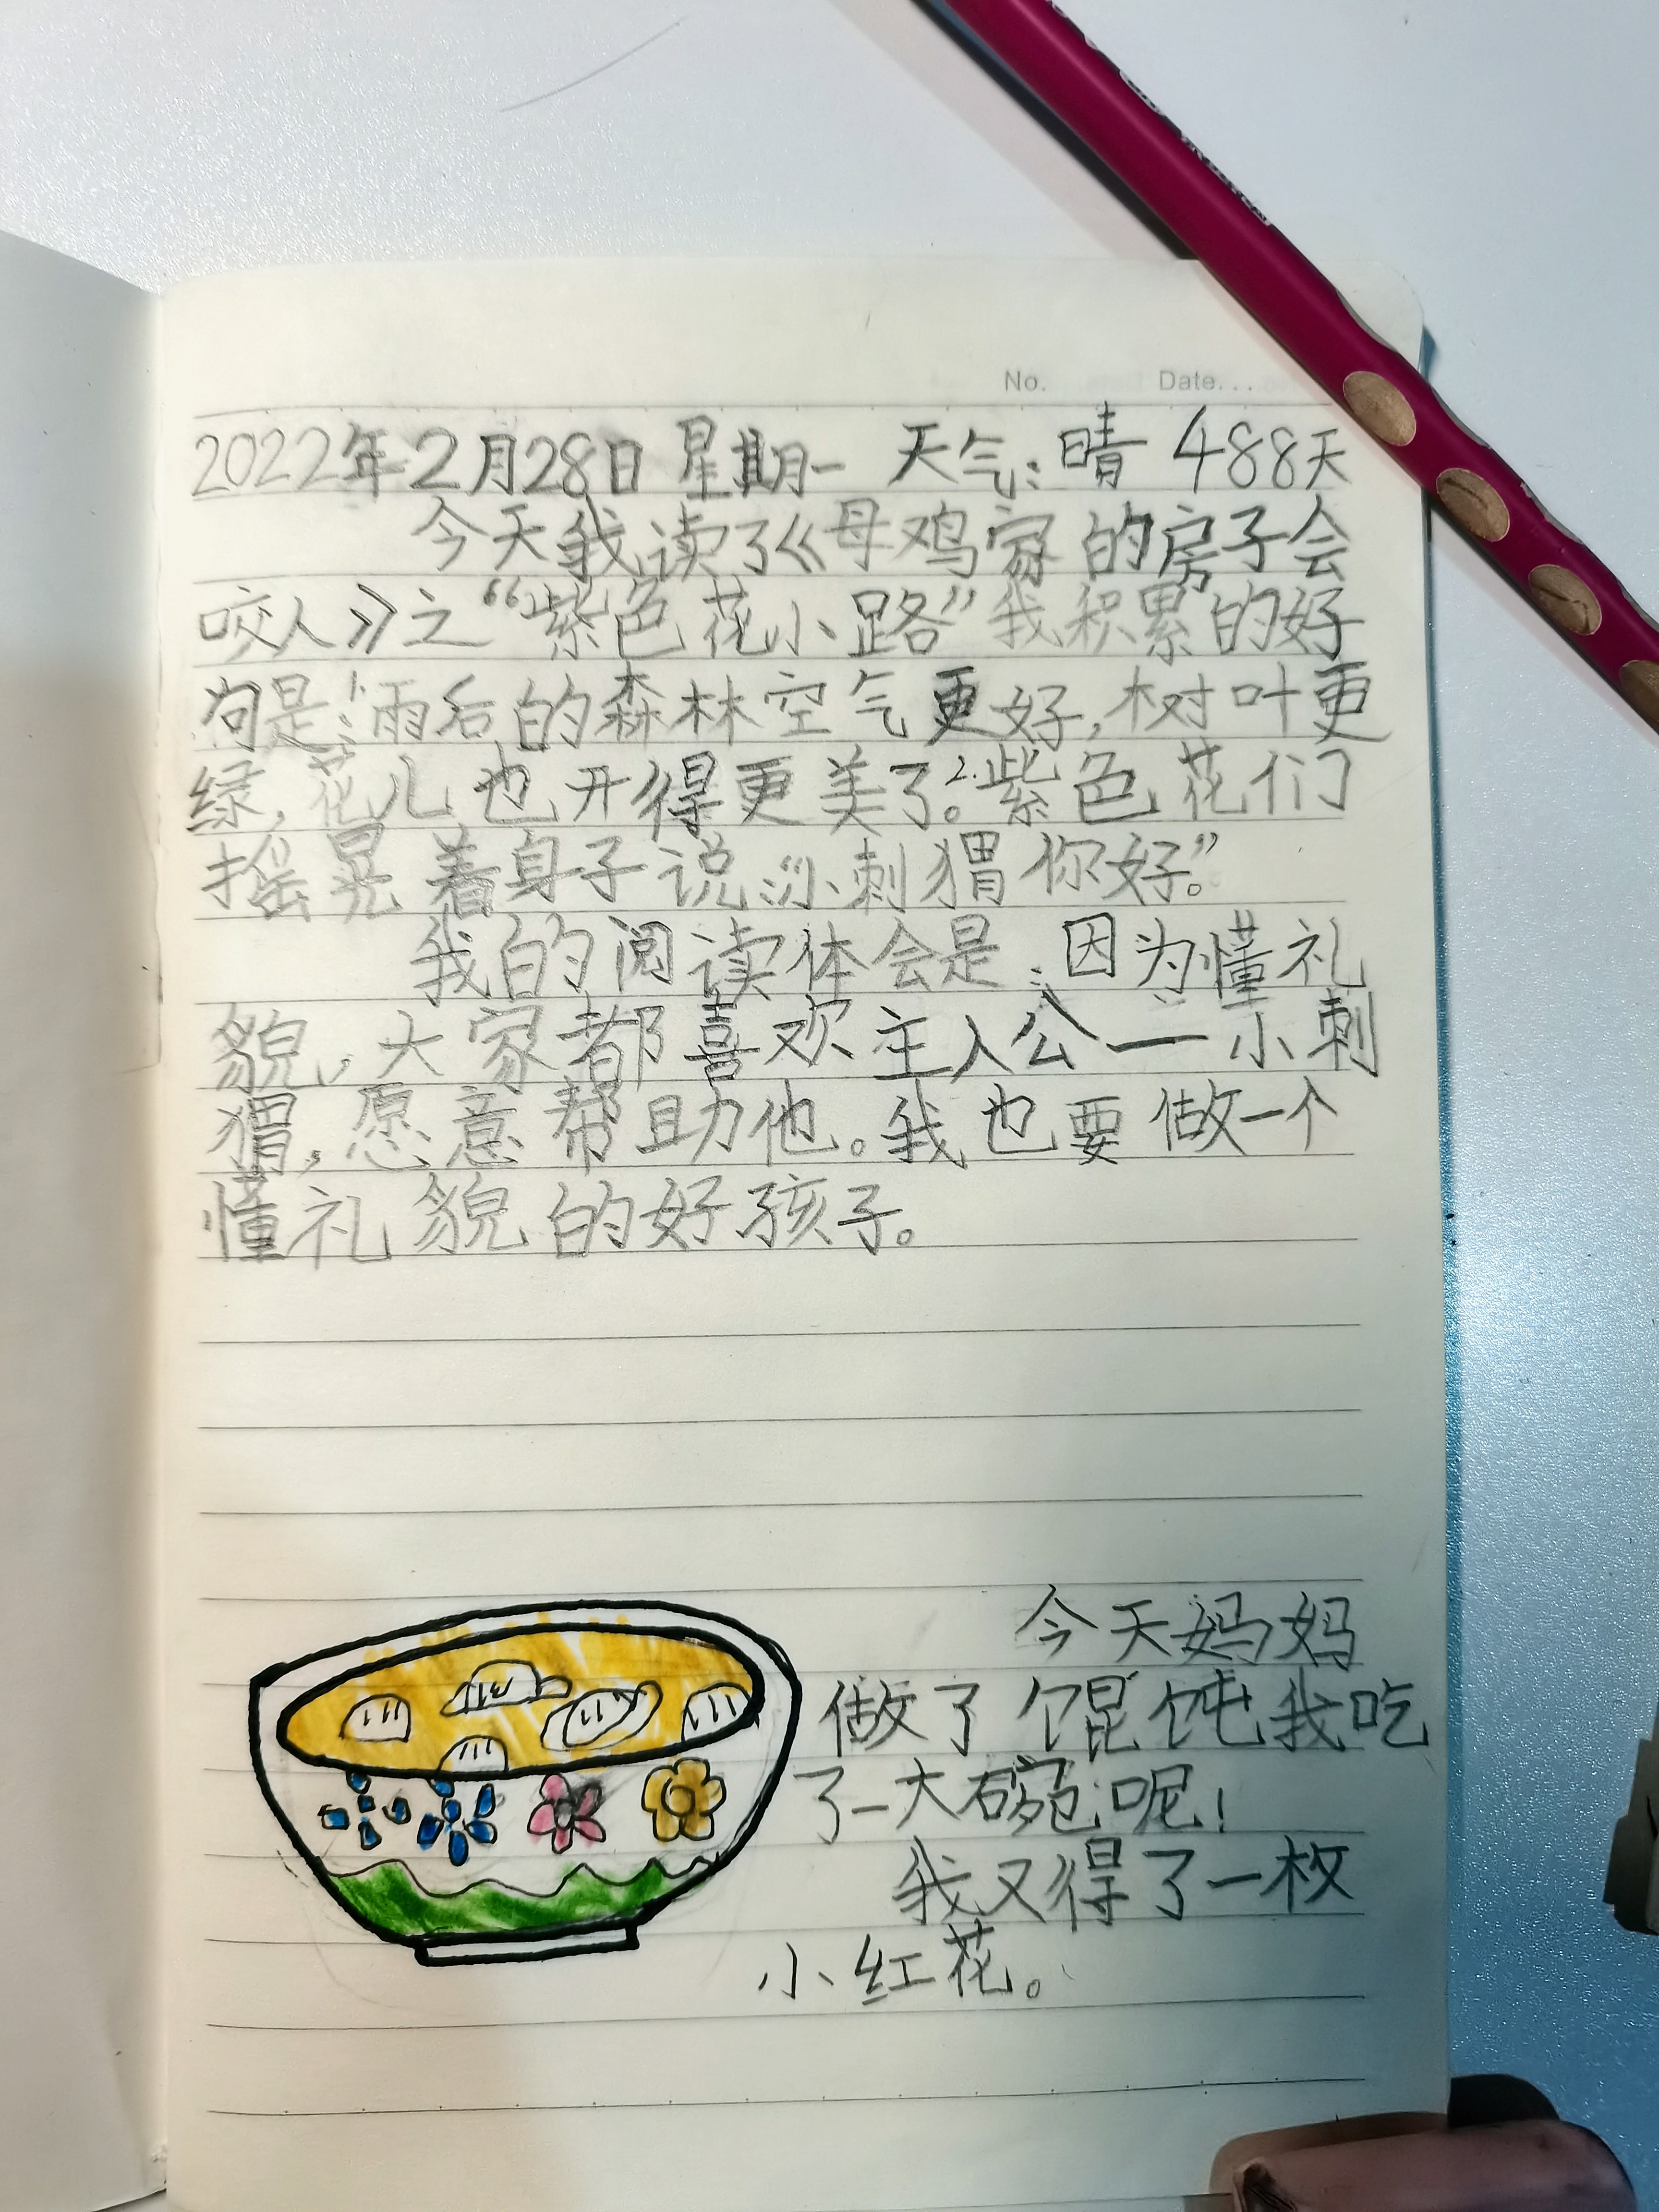 No. Date...
2022年2月28日 星期一 天气:晴 488天
今天我读了《母鸡家的房子会
咬人》之“紫色花小路”我积累的好
句是:1.雨后的森林空气更好,树叶更
绿,花儿也开得更美了。2.紫色花们
摇晃着身子说:“小刺猬你好。”
我的阅读体会是:因为懂礼
貌,大家都喜欢主人公——小刺
猬,愿意帮助他。我也要做一个
懂礼貌的好孩子。
今天妈妈
做了馄饨我吃
了一大碗呢!
我又得了一枚
小红花。